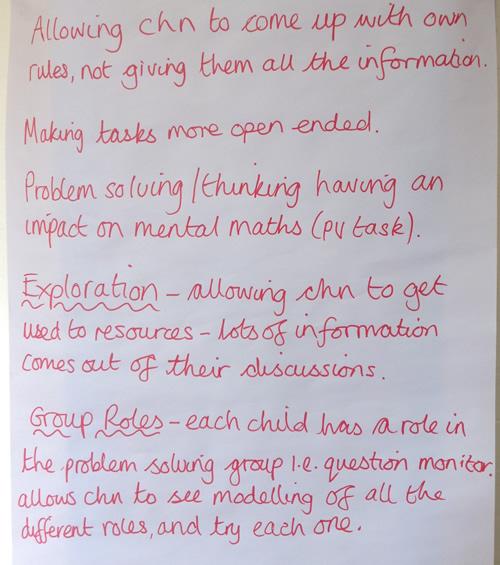 Allowing chn to come up with own
rules, not giving them all the information.
Making tasks more open ended.
Problem solving/thinking having an
impact on mental maths (pv task).
Exploration - allowing chn to get
used to resources - lots of information
comes out of their discussions.
Group Roles - each child has a role in
the problem solving group i.e. question monitor.
allows chn to see modelling of all the
different roles, and try each one.